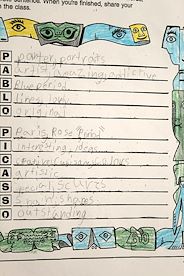 sentence. When you're finished, share your
the class.
P painter, portraits
A artist, amazing, addictive
B Blue period
L lines,
O original
P Paris, Rose Period
I interesting, ideas
C creative, colours
A artistic
S
S shapes
O outstanding